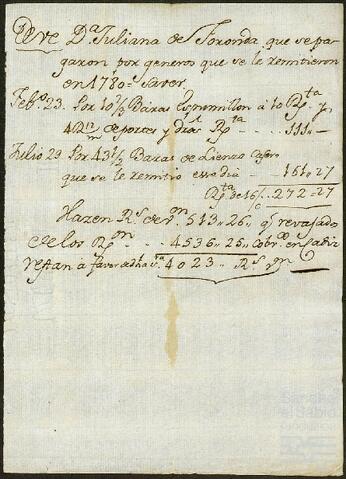 Deve Dª Juliana de Foronda que se pa-
garon por generos que se le remitieron
en 1780= Saver.
Febº 23. Por 10 1/3 Baras Espumillon a 10 Rˢ pta y
4 Rˢ vn de portes y dras Rˢ pta - - - 111„-
Julio 29 Por 43 1/2 Baras de Lienzo Casero
que se le remitio esse dia - - - - 161„27
Rˢ pta de 16/c 272„27
Hazen Rˢ de vn 513„26„ q̃ revajados
de los Rˢ vn - - - 4536„25„ cobrdos en Cadiz
restan á favor de dha Sra 4023„ Rˢ vn
Sancho
el Sabio